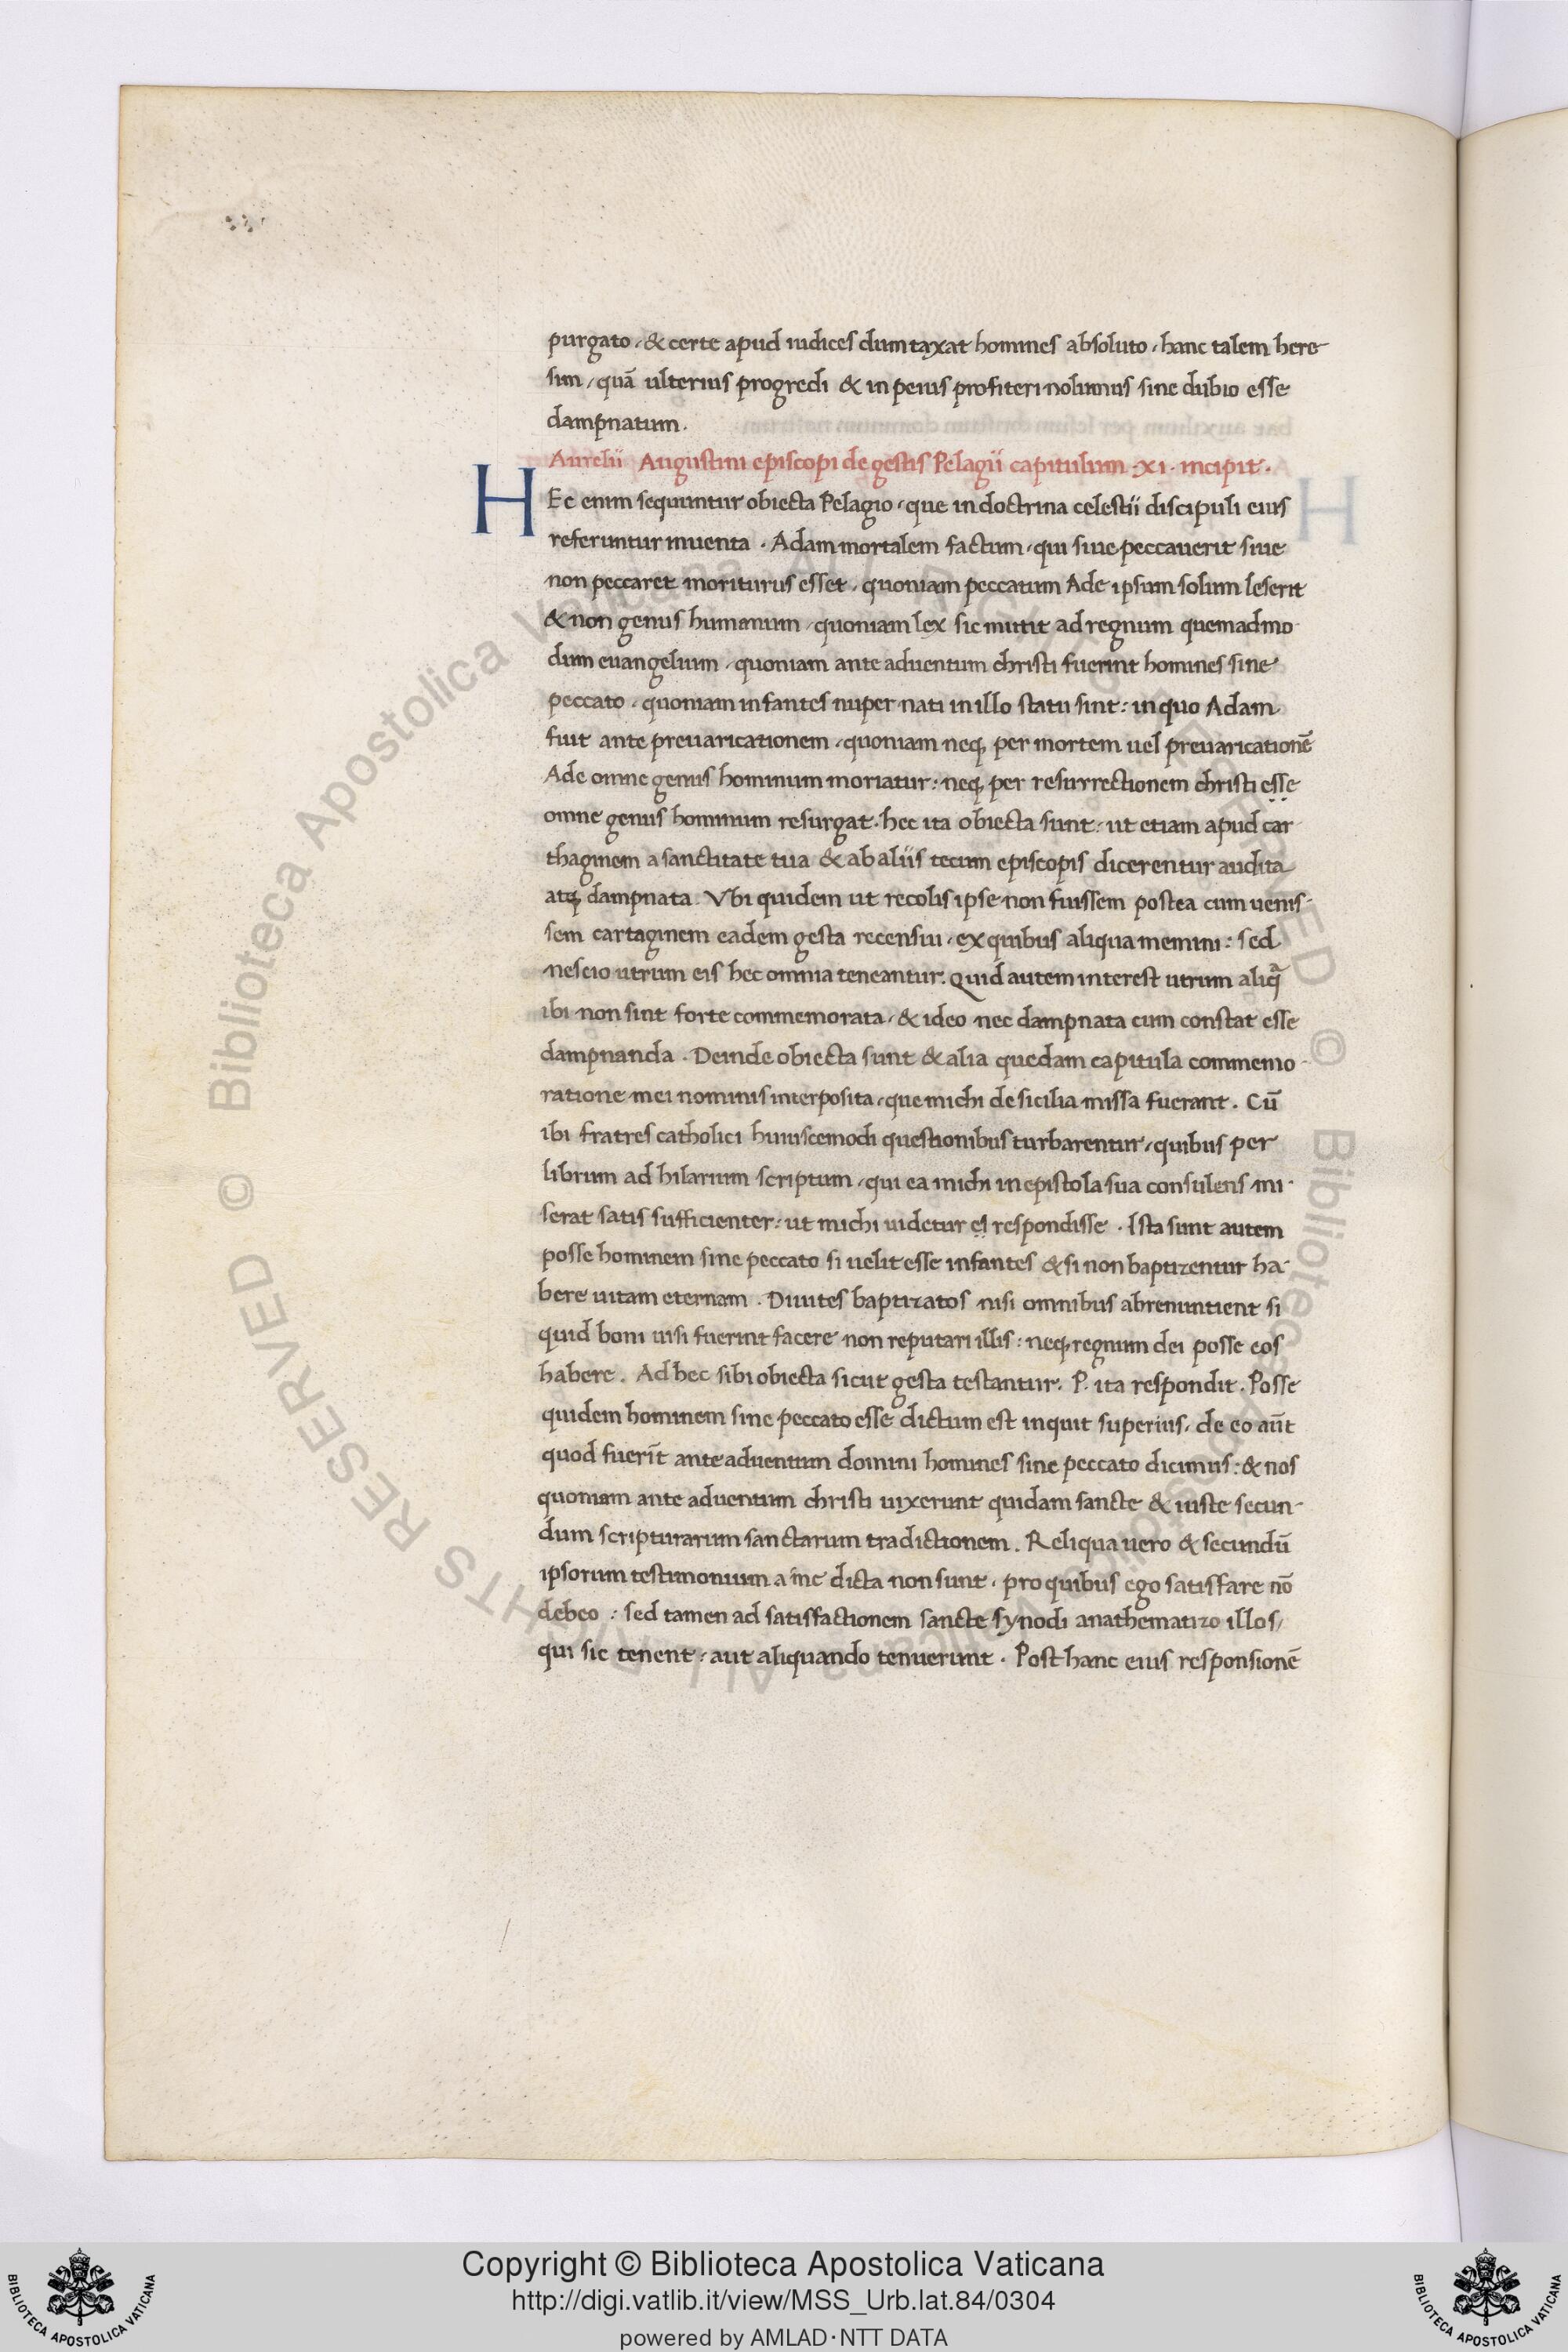 purgato, & certe apud iudices dumtaxat homines absoluto, hanc talem here
sim, quā ulterius progredi & in peius profiteri nolimus sine dubio esse
dampnatum.
Aurelii Augustini episcopi de gestis Pelagii capitulum .XI. incipit.
HEc enim sequuntur obiecta Pelagio, que in doctrina celestii discipuli eius
referuntur inuenta. Adam mortalem factum, qui siue peccauerit siue
non peccaret moriturus esset, quoniam peccatum Ade ipsum solum leserit
& non genus humanum, quoniam lex sic mittit ad regnum quemadmo
dum euangelium, quoniam ante aduentum christi fuerint homines sine
peccato, quoniam infantes nuper nati in illo statu sint: in quo Adam
fuit ante preuaricationem, quoniam neq; per mortem uel preuaricationē
Ade omne genus hominum moriatur: neq; per resurrectionem christi esse
omne genus hominum resurgat. hec ita obiecta sunt: ut etiam apud car
thaginem a sanctitate tua & ab aliis tecum episcopis dicerentur audita
atq; dampnata. Vbi quidem ut recolis ipse non fuissem postea cum uenis-
sem cartaginem eadem gesta recensui, ex quibus aliqua memini: sed
nescio utrum eis hec omnia teneantur. Quid autem interest utrum aliq̄
ibi non sint forte commemorata, & ideo nec dampnata cum constat esse
dampnanda. Deinde obiecta sunt & alia quedam capitula commemo-
ratione mei nominis interposita, que michi de sicilia missa fuerant. Cū
ibi fratres catholici huiuscemodi questionibus turbarentur, quibus per
librum ad hilarium scriptum, qui ea michi in epistola sua consulens mi-
serat satis sufficienter: ut michi uidetur ei respondisse. Ista sunt autem
posse hominem sine peccato si uelit esse infantes & si non baptizentur ha-
bere uitam eternam. Diuites baptizatos nisi omnibus abrenuntient si
quid boni uisi fuerint facere non reputari illis: neq; regnum dei posse eos
habere. Ad hec sibi obiecta sicut gesta testantur. P. ita respondit. Posse
quidem hominem sine peccato esse dictum est inquit superius, de eo aūt
quod fuerīt ante aduentum domini homines sine peccato dicimus: & nos
quoniam ante aduentum christi uixerunt quidam sancte & iuste secun-
dum scripturarum sanctarum tradictionem. Reliqua uero & secundū
ipsorum testimonium a me dicta non sunt, pro quibus ego satisfare nō
debeo: sed tamen ad satisfactionem sancte synodi anathematizo illos,
qui sic tenent: aut aliquando tenuerunt. Post hanc eius responsionē
© Biblioteca Apostolica Vaticana ALL RIGHTS RESERVED © Biblioteca Apostolica Vaticana ALL RIGHTS RESERVED
Copyright © Biblioteca Apostolica Vaticana
http://digi.vatlib.it/view/MSS_Urb.lat.84/0304
powered by AMLAD·NTT DATA
BIBLIOTECA APOSTOLICA VATICANA
BIBLIOTECA APOSTOLICA VATICANA